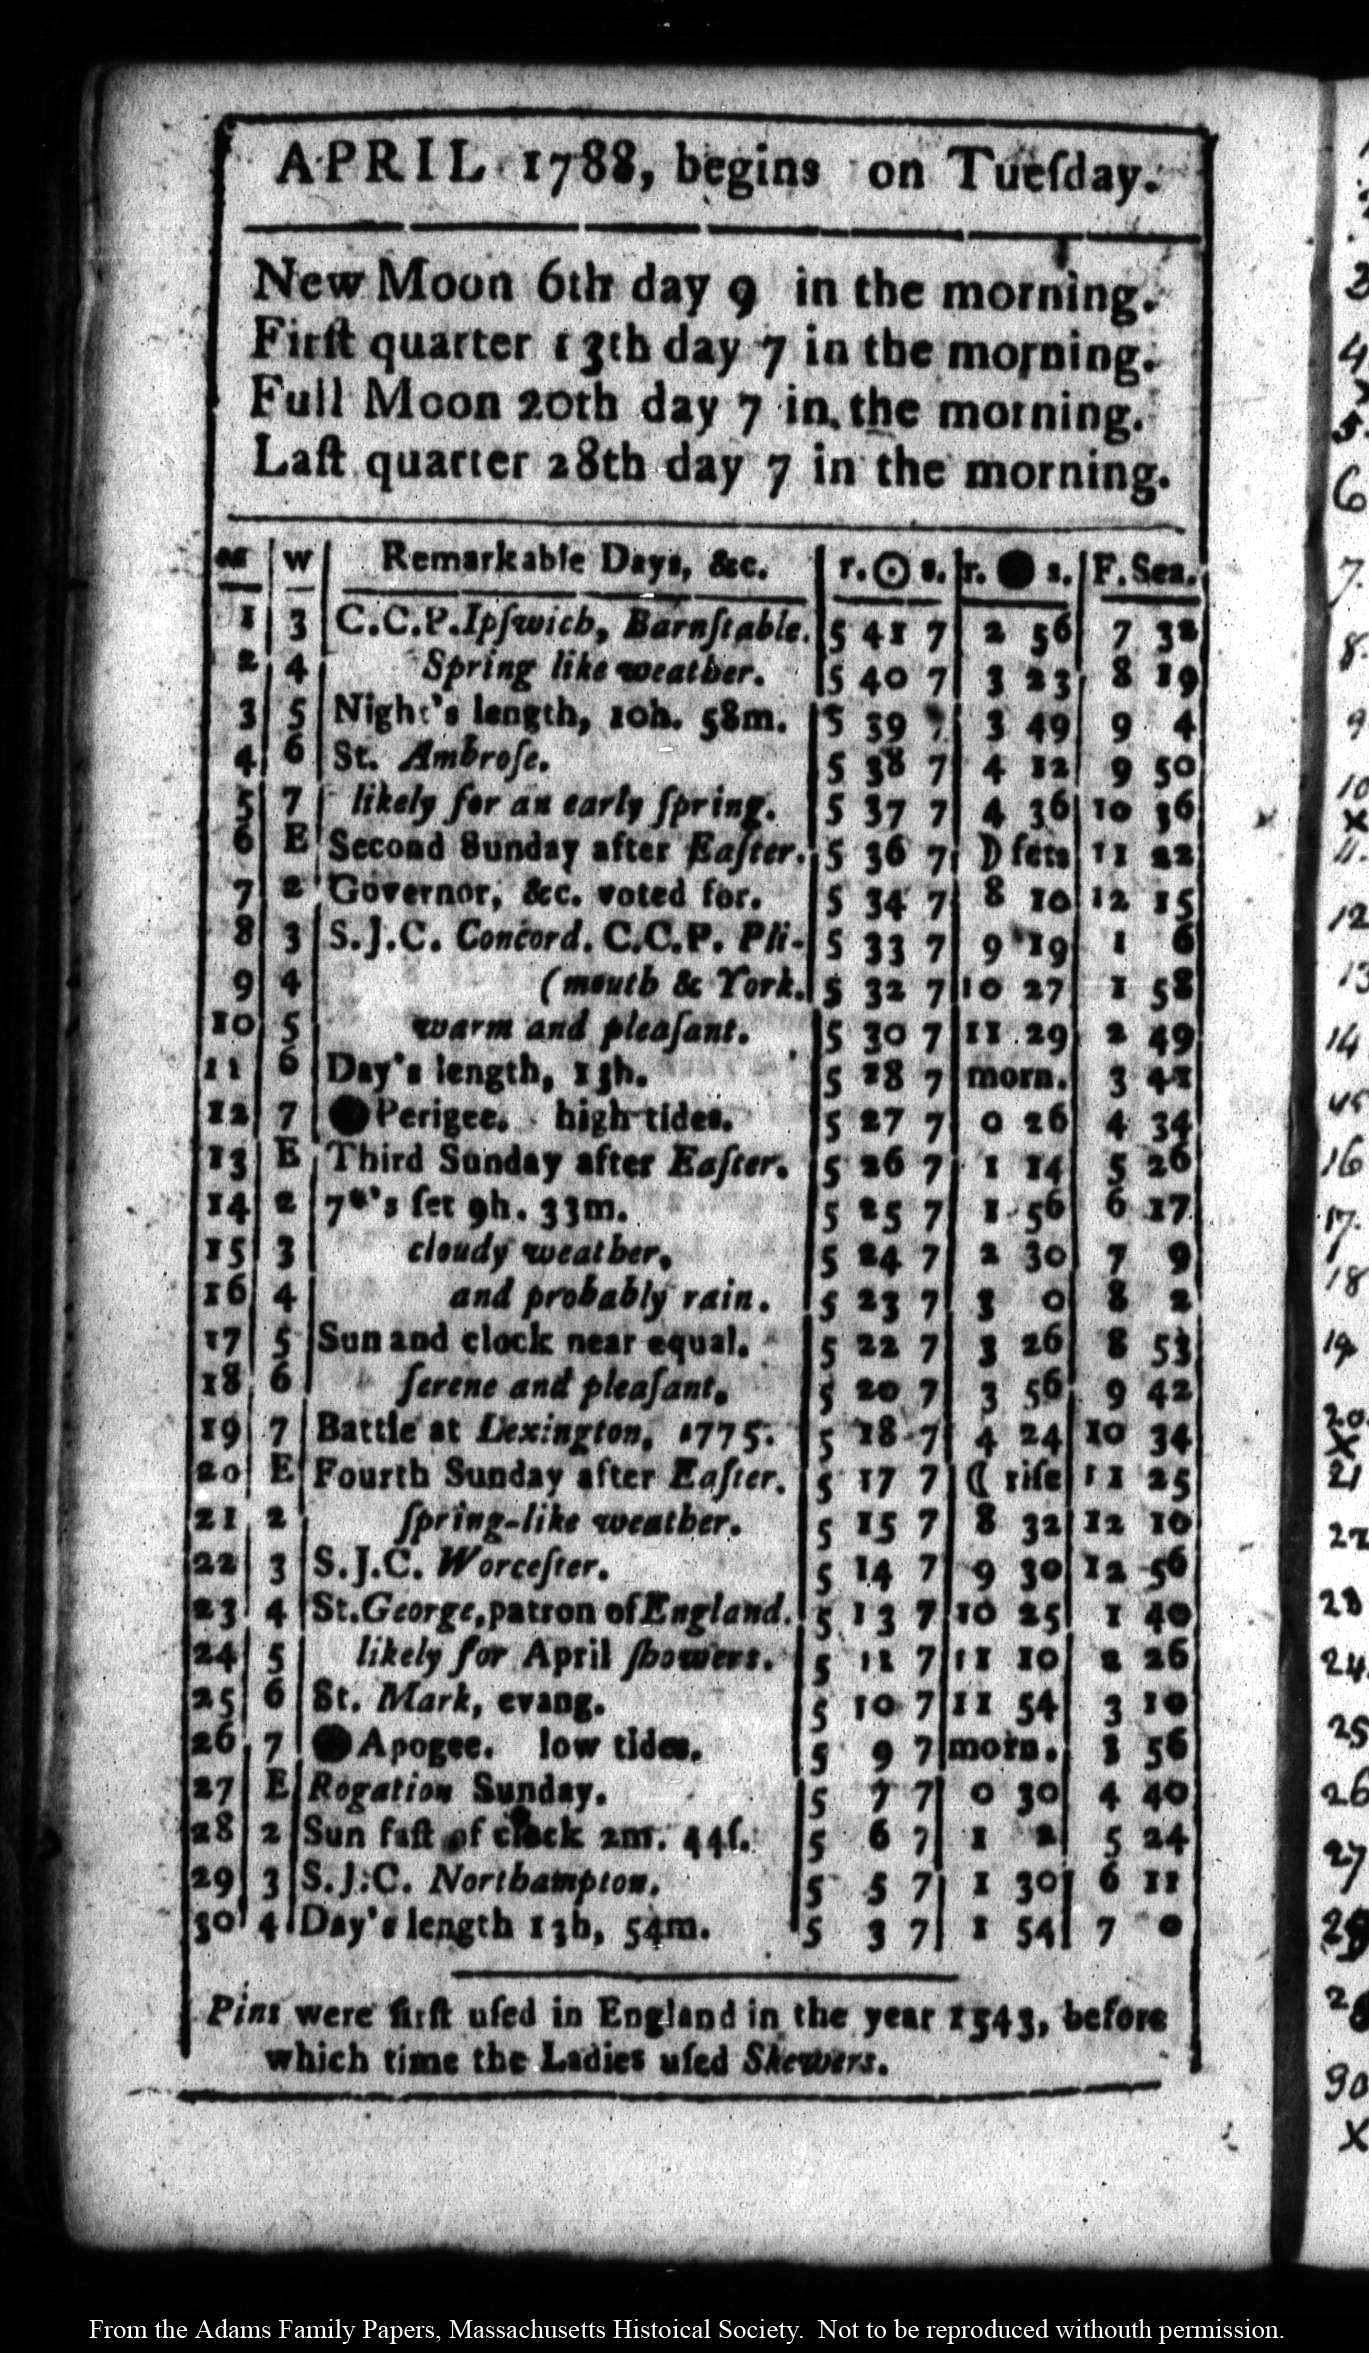 APRIL 1788, begins on Tueſday.
New Moon 6th day 9 in the morning.
Firſt quarter 13th day 7 in the morning.
Full Moon 20th day 7 in the morning.
Laſt quarter 28th day 7 in the morning.
M W Remarkable Days, &c. r. ☉ s. r. ● s. F. Sea.
1 3 C.C.P. Ipſwich, Barnſtable. 5 41 7 2 56 7 32
2 4 Spring like weather. 5 40 7 3 23 8 19
3 5 Night's length, 10h. 58m. 5 39 7 3 49 9 4
4 6 St. Ambroſe. 5 38 7 4 12 9 50
5 7 likely for an early ſpring. 5 37 7 4 36 10 36
6 E Second Sunday after Eaſter. 5 36 7 ☽ ſets 11 22
7 2 Governor, &c. voted for. 5 34 7 8 10 12 15
8 3 S.J.C. Concord. C.C.P. Pli- 5 33 7 9 19 1 6
9 4 (mouth & York. 5 32 7 10 27 1 58
10 5 warm and pleaſant. 5 30 7 11 29 2 49
11 6 Day's length, 13h. 5 28 7 morn. 3 41
12 7 ● Perigee. high tides. 5 27 7 0 26 4 34
13 E Third Sunday after Eaſter. 5 26 7 1 14 5 26
14 2 7*'s ſet 9h. 33m. 5 25 7 1 56 6 17
15 3 cloudy weather, 5 24 7 2 30 7 9
16 4 and probably rain. 5 23 7 3 0 8 2
17 5 Sun and clock near equal. 5 22 7 3 26 8 53
18 6 ſerene and pleaſant. 5 20 7 3 56 9 42
19 7 Battle at Lexington, 1775. 5 18 7 4 24 10 34
20 E Fourth Sunday after Eaſter. 5 17 7 ☾ riſe 11 25
21 2 ſpring-like weather. 5 15 7 8 32 12 10
22 3 S.J.C. Worceſter. 5 14 7 9 30 12 56
23 4 St. George, patron of England. 5 13 7 10 25 1 40
24 5 likely for April ſhowers. 5 11 7 11 10 2 26
25 6 St. Mark, evang. 5 10 7 11 54 3 10
26 7 ● Apogee. low tides. 5 9 7 morn. 3 56
27 E Rogation Sunday. 5 7 7 0 30 4 40
28 2 Sun faſt of clock 2m. 44ſ. 5 6 7 1 2 5 24
29 3 S.J.C. Northampton. 5 5 7 1 30 6 11
30 4 Day's length 13h, 54m. 5 3 7 1 54 7 0
Pins were firſt uſed in England in the year 1543, before
which time the Ladies uſed Skewers.
3
4
x
5
6
7
8
9
10
x
11
12
13
14
15
16
17
18
19
20
x
21
22
23
24
25
26
27
28
30
x
From the Adams Family Papers, Massachusetts Histoical Society. Not to be reproduced withouth permission.